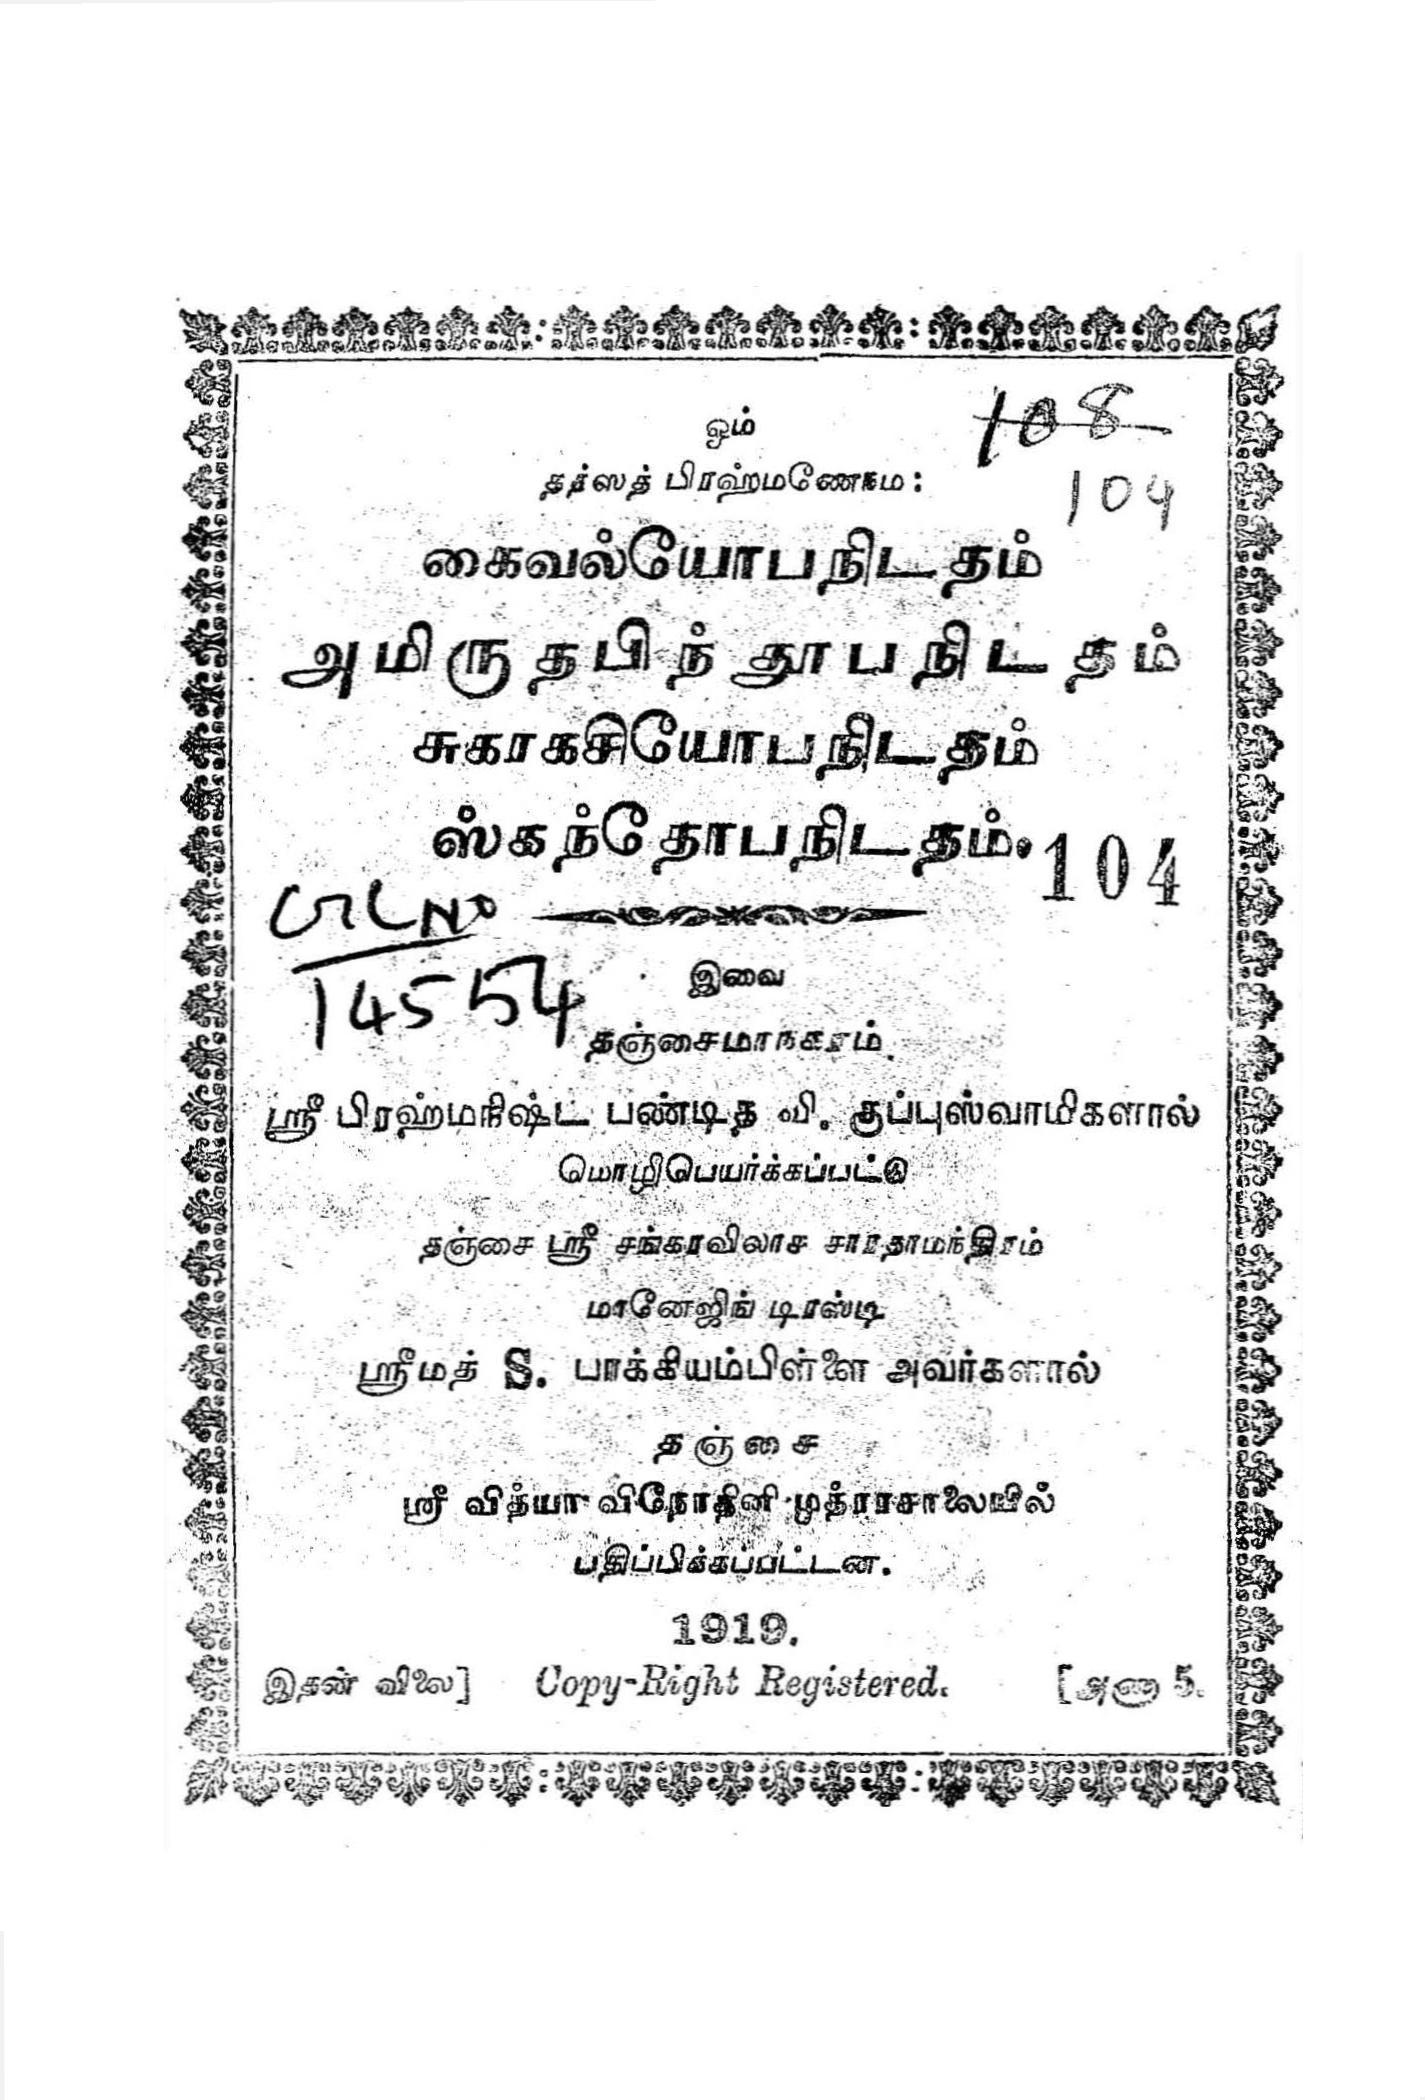 ஓம்
108
தத்ஸத் பிரஹ்மணேநம:
104
கைவல்யோபநிடதம்
அமிருதபிந்தூபநிடதம்
சுகரகசியோபநிடதம்
ஸ்கந்தோபநிடதம்.
104
14554
இவை
தஞ்சைமாநகரம்
ஸ்ரீ பிரஹ்மநிஷ்ட பண்டித வி. குப்புஸ்வாமிகளால்
மொழிபெயர்க்கப்பட்டு
தஞ்சை ஸ்ரீ சங்கரவிலாச சாரதாமந்திரம்
மானேஜிங் டிரஸ்டி
ஸ்ரீமத் S. பாக்கியம்பிள்ளை அவர்களால்
தஞ்சை
ஸ்ரீ வித்யா விநோதினி முத்ராசாலையில்
பதிப்பிக்கப்பட்டன.
1919.
இதன் விலை] Copy-Right Registered. [அணா 5.